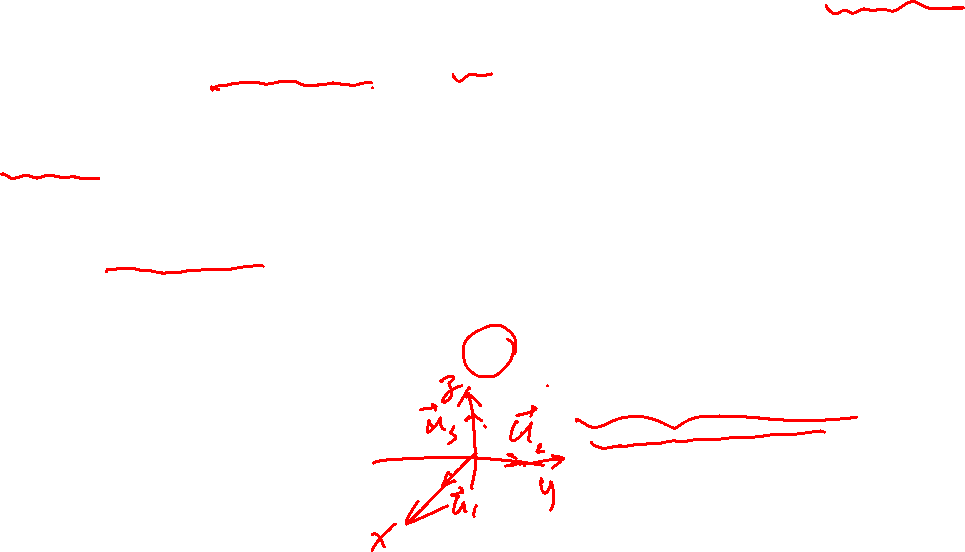 z
\vec{u}_3 \vec{u}_2
y
\vec{u}_1
x